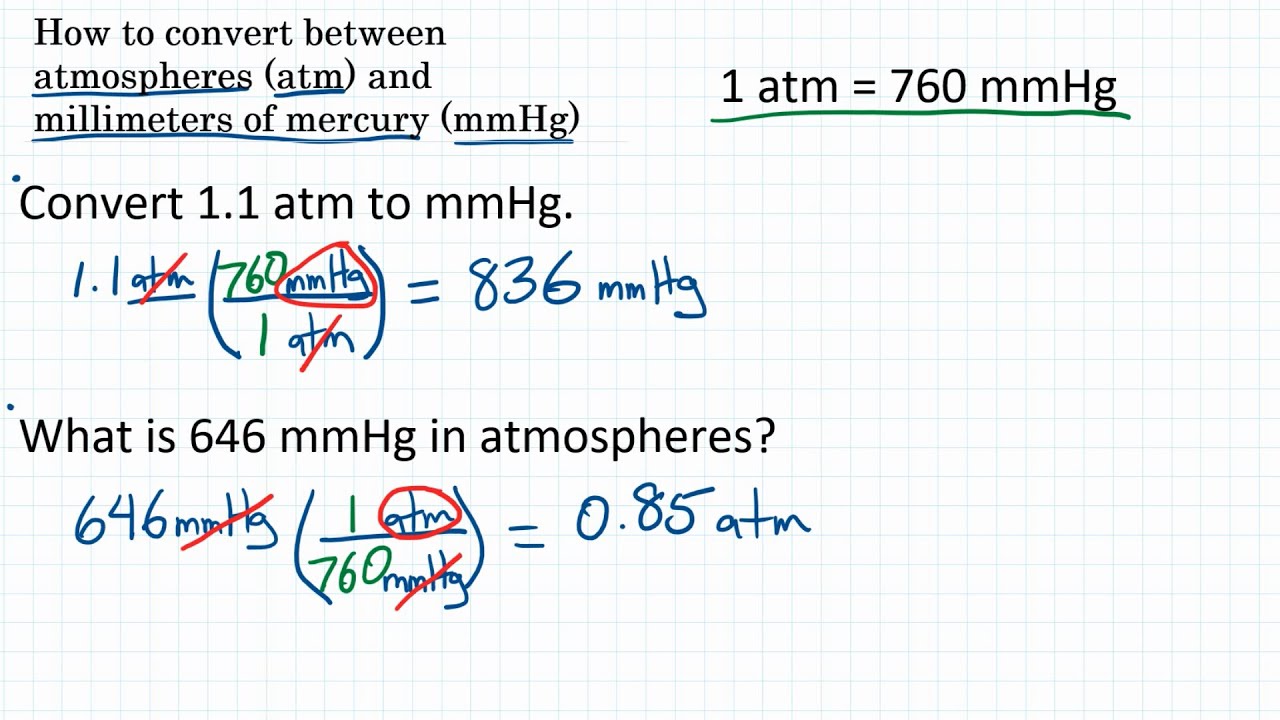 How to convert between
atmospheres (atm) and
millimeters of mercury (mmHg)
1 atm = 760 mmHg
Convert 1.1 atm to mmHg.
1.1 atm (760 mmHg / 1 atm) = 836 mmHg
What is 646 mmHg in atmospheres?
646 mmHg (1 atm / 760 mmHg) = 0.85 atm